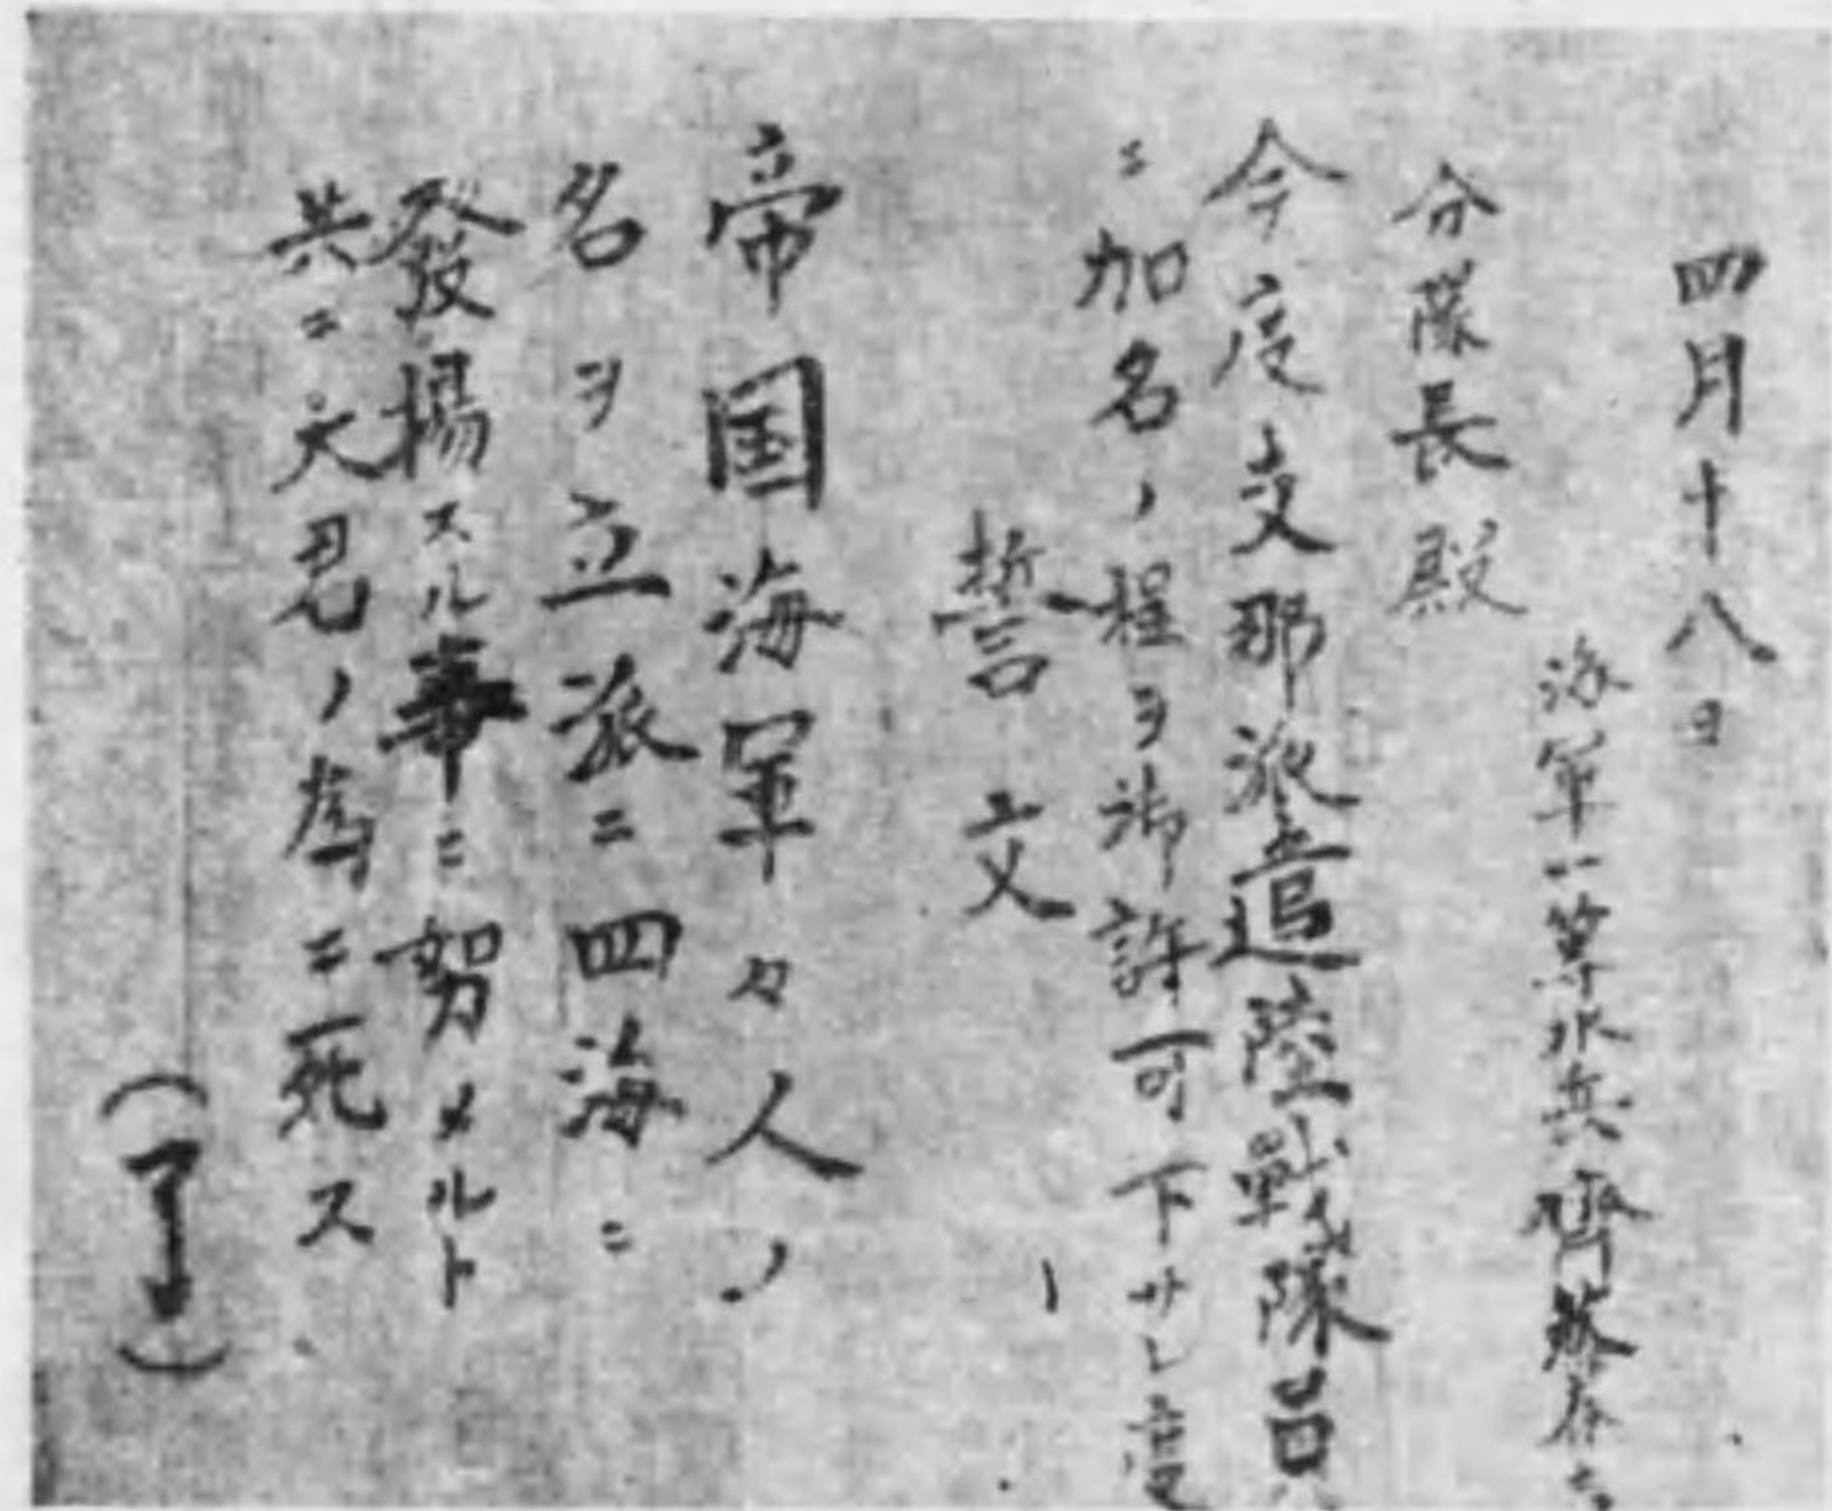 四月十八日
海軍一等水兵齊藤春
分隊長殿
今度支那派遣陸戰隊員
ニ加名ノ程ヲ御許可下サレ度
誓文
帝国海軍々人ノ
名ヲ立派ニ四海ニ
發揚スル事ニ努メルト
共ニ大君ノ為ニ死ス
(了)